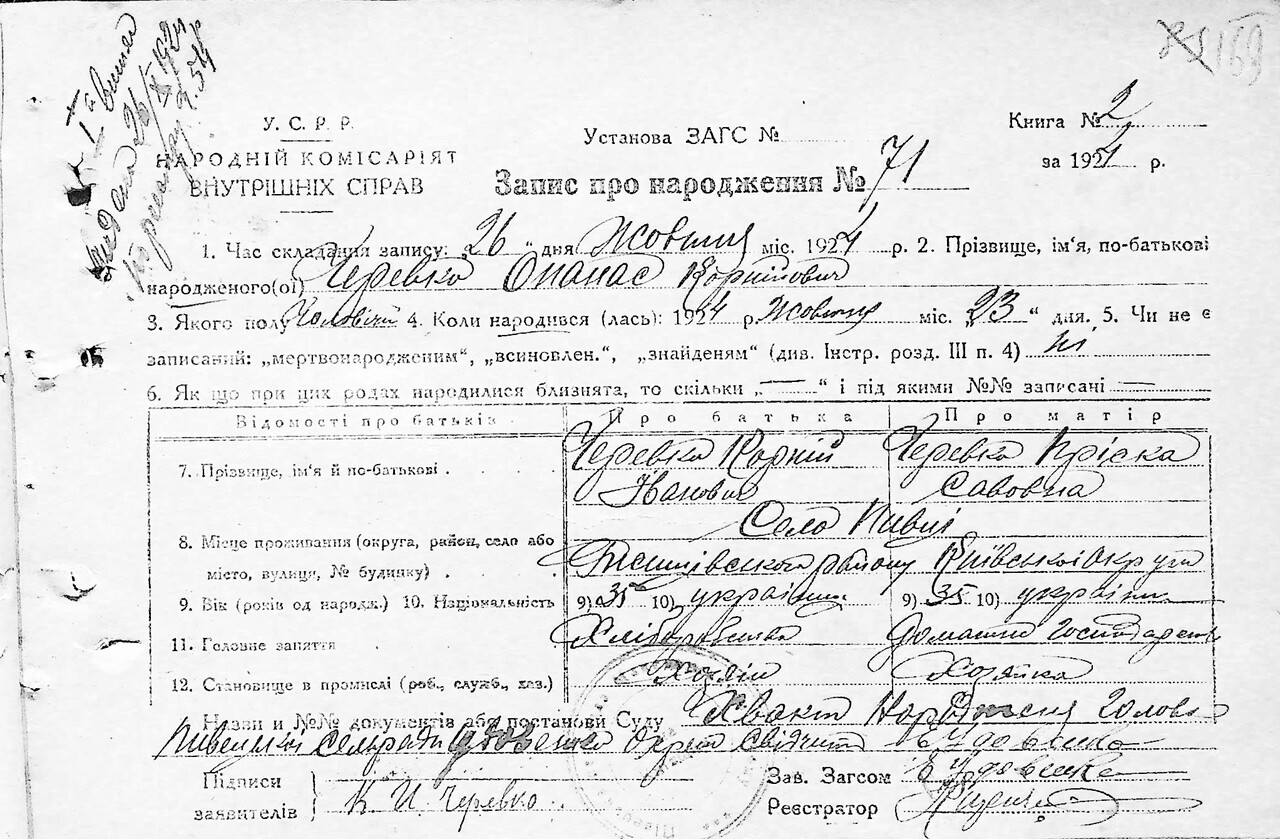 169
У. С. Р. Р.
НАРОДНІЙ КОМІСАРІЯТ
ВНУТРІШНІХ СПРАВ
Установа ЗАГС №
Книга № 2
за 1924 р.
Запис про народження № 71
1. Час складання запису: „26“ дня Жовтня міс. 1924 р. 2. Прізвище, ім'я, по-батькові
народженого(ої) Черевко Опанас Корнійович
3. Якого полу Чоловічий 4. Коли народився (лась): 1924 р. Жовтня міс. „23“ дня. 5. Чи не є
записаний: „мертвонародженим“, „всиновлен.“, „знайденям“ (див. Інстр. розд. III п. 4) ні
6. Як що при цих родах народилися близнята, то скільки „—“ і під якими №№ записані —
Відомості про батьків Про батька Про матір
7. Прізвище, ім'я й по-батькові Черевко Корній Черевко Пріска
Іванович Савовна
Село Пивці
8. Місце проживання (округа, район, село або
місто, вулиця, № будинку) району Київської Округи
9. Вік (років од народж.) 10. Національність 9) 35 10) українець 9) 35 10) українка
11. Головне заняття Хліборобство домашнє господарство
12. Становище в промислі (роб., служб., хаз.) Хозяїн Хозяйка
Назви и №№ документів або постанови Суду Народження Голова
Сельради
Підписи
заявителів К. И. Черевко
Зав. Загсом
Реєстратор